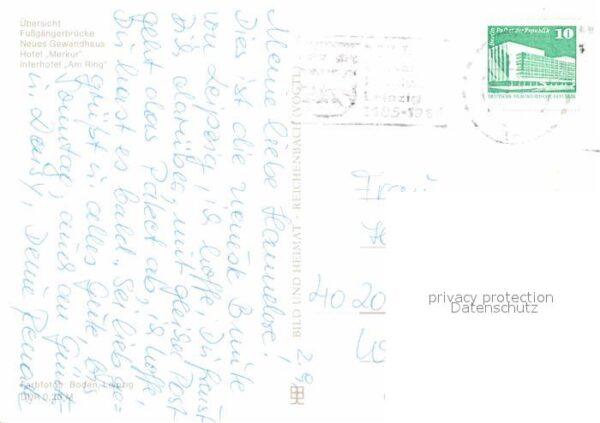 Übersicht
Fußgängerbrücke
Neues Gewandhaus
Hotel „Merkur"
Interhotel „Am Ring"
Meine liebe Hannelose!
Dies ist die neueste Bunte
von Leipzig, ich hoffe, Du freust
Dich darüber, mit gleicher Post
geht das Paket ab, ich hoffe,
Du hast es bald. Sei lieb ge-
grüßt u. alles Gute bis
Sonntag, auch an Günter
u. Daisy, Deine Renate
Farbfotos: Boden, Leipzig
DDR 0,20 M
BILD UND HEIMAT · REICHENBACH (VOGTL)
Palast der Republik
10
Leipzig
Frau
40 20
privacy protection
Datenschutz